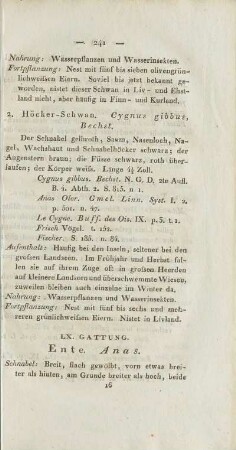 — 241 —
Nahrung: Wasserpflanzen und Wasserinsekten.
Fortpflanzung: Nest mit fünf bis sieben olivengrün-
lichweissen Eiern. Soviel bis jetzt bekannt ge-
worden, nistet dieser Schwan in Liv- und Ehst-
land nicht, aber häufig in Finn- und Kurland.
2. Höcker-Schwan. Cygnus gibbus,
Bechst.
Der Schnabel gelbroth, Saum, Nasenloch, Na-
gel, Wachshaut und Schnabelhöcker schwarz; der
Augenstern braun; die Füsse schwarz, roth über-
laufen; der Körper weiss. Länge 4½ Zoll.
Cygnus gibbus. Bechst. N. G. D. 2te Aufl.
B. 4. Abth. 2. S. 815. n 1.
Anas Olor. Gmel. Linn. Syst. I. 2.
p. 501. n. 47.
Le Cygne. Buff. des Ois. IX. p. 3. t. 1.
Frisch Vögel. t. 152.
Fischer. S. 185. n. 84.
Aufenthalt: Häufig bei den Inseln, seltener bei den
grossen Landseen. Im Frühjahr und Herbst fal-
len sie auf ihrem Zuge oft in grossen Heerden
auf kleinere Landseen und überschwemmte Wiesen,
zuweilen bleiben auch einzelne im Winter da.
Nahrung: Wasserpflanzen und Wasserinsekten.
Fortpflanzung: Nest mit fünf bis sechs und meh-
reren grünlichweissen Eiern. Nistet in Livland.
LX. GATTUNG.
Ente. Anas.
Schnabel: Breit, flach gewölbt, vorn etwas brei-
ter als hinten, am Grunde breiter als hoch, beide
16